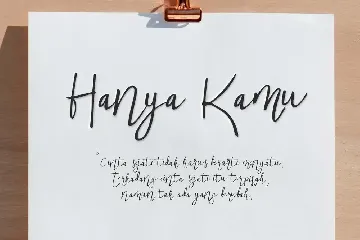 Hanya Kamu
"Cinta sejati tidak harus berarti menyatu,
Terkadang cinta sejati itu terpisah,
namun tak ada yang berubah.